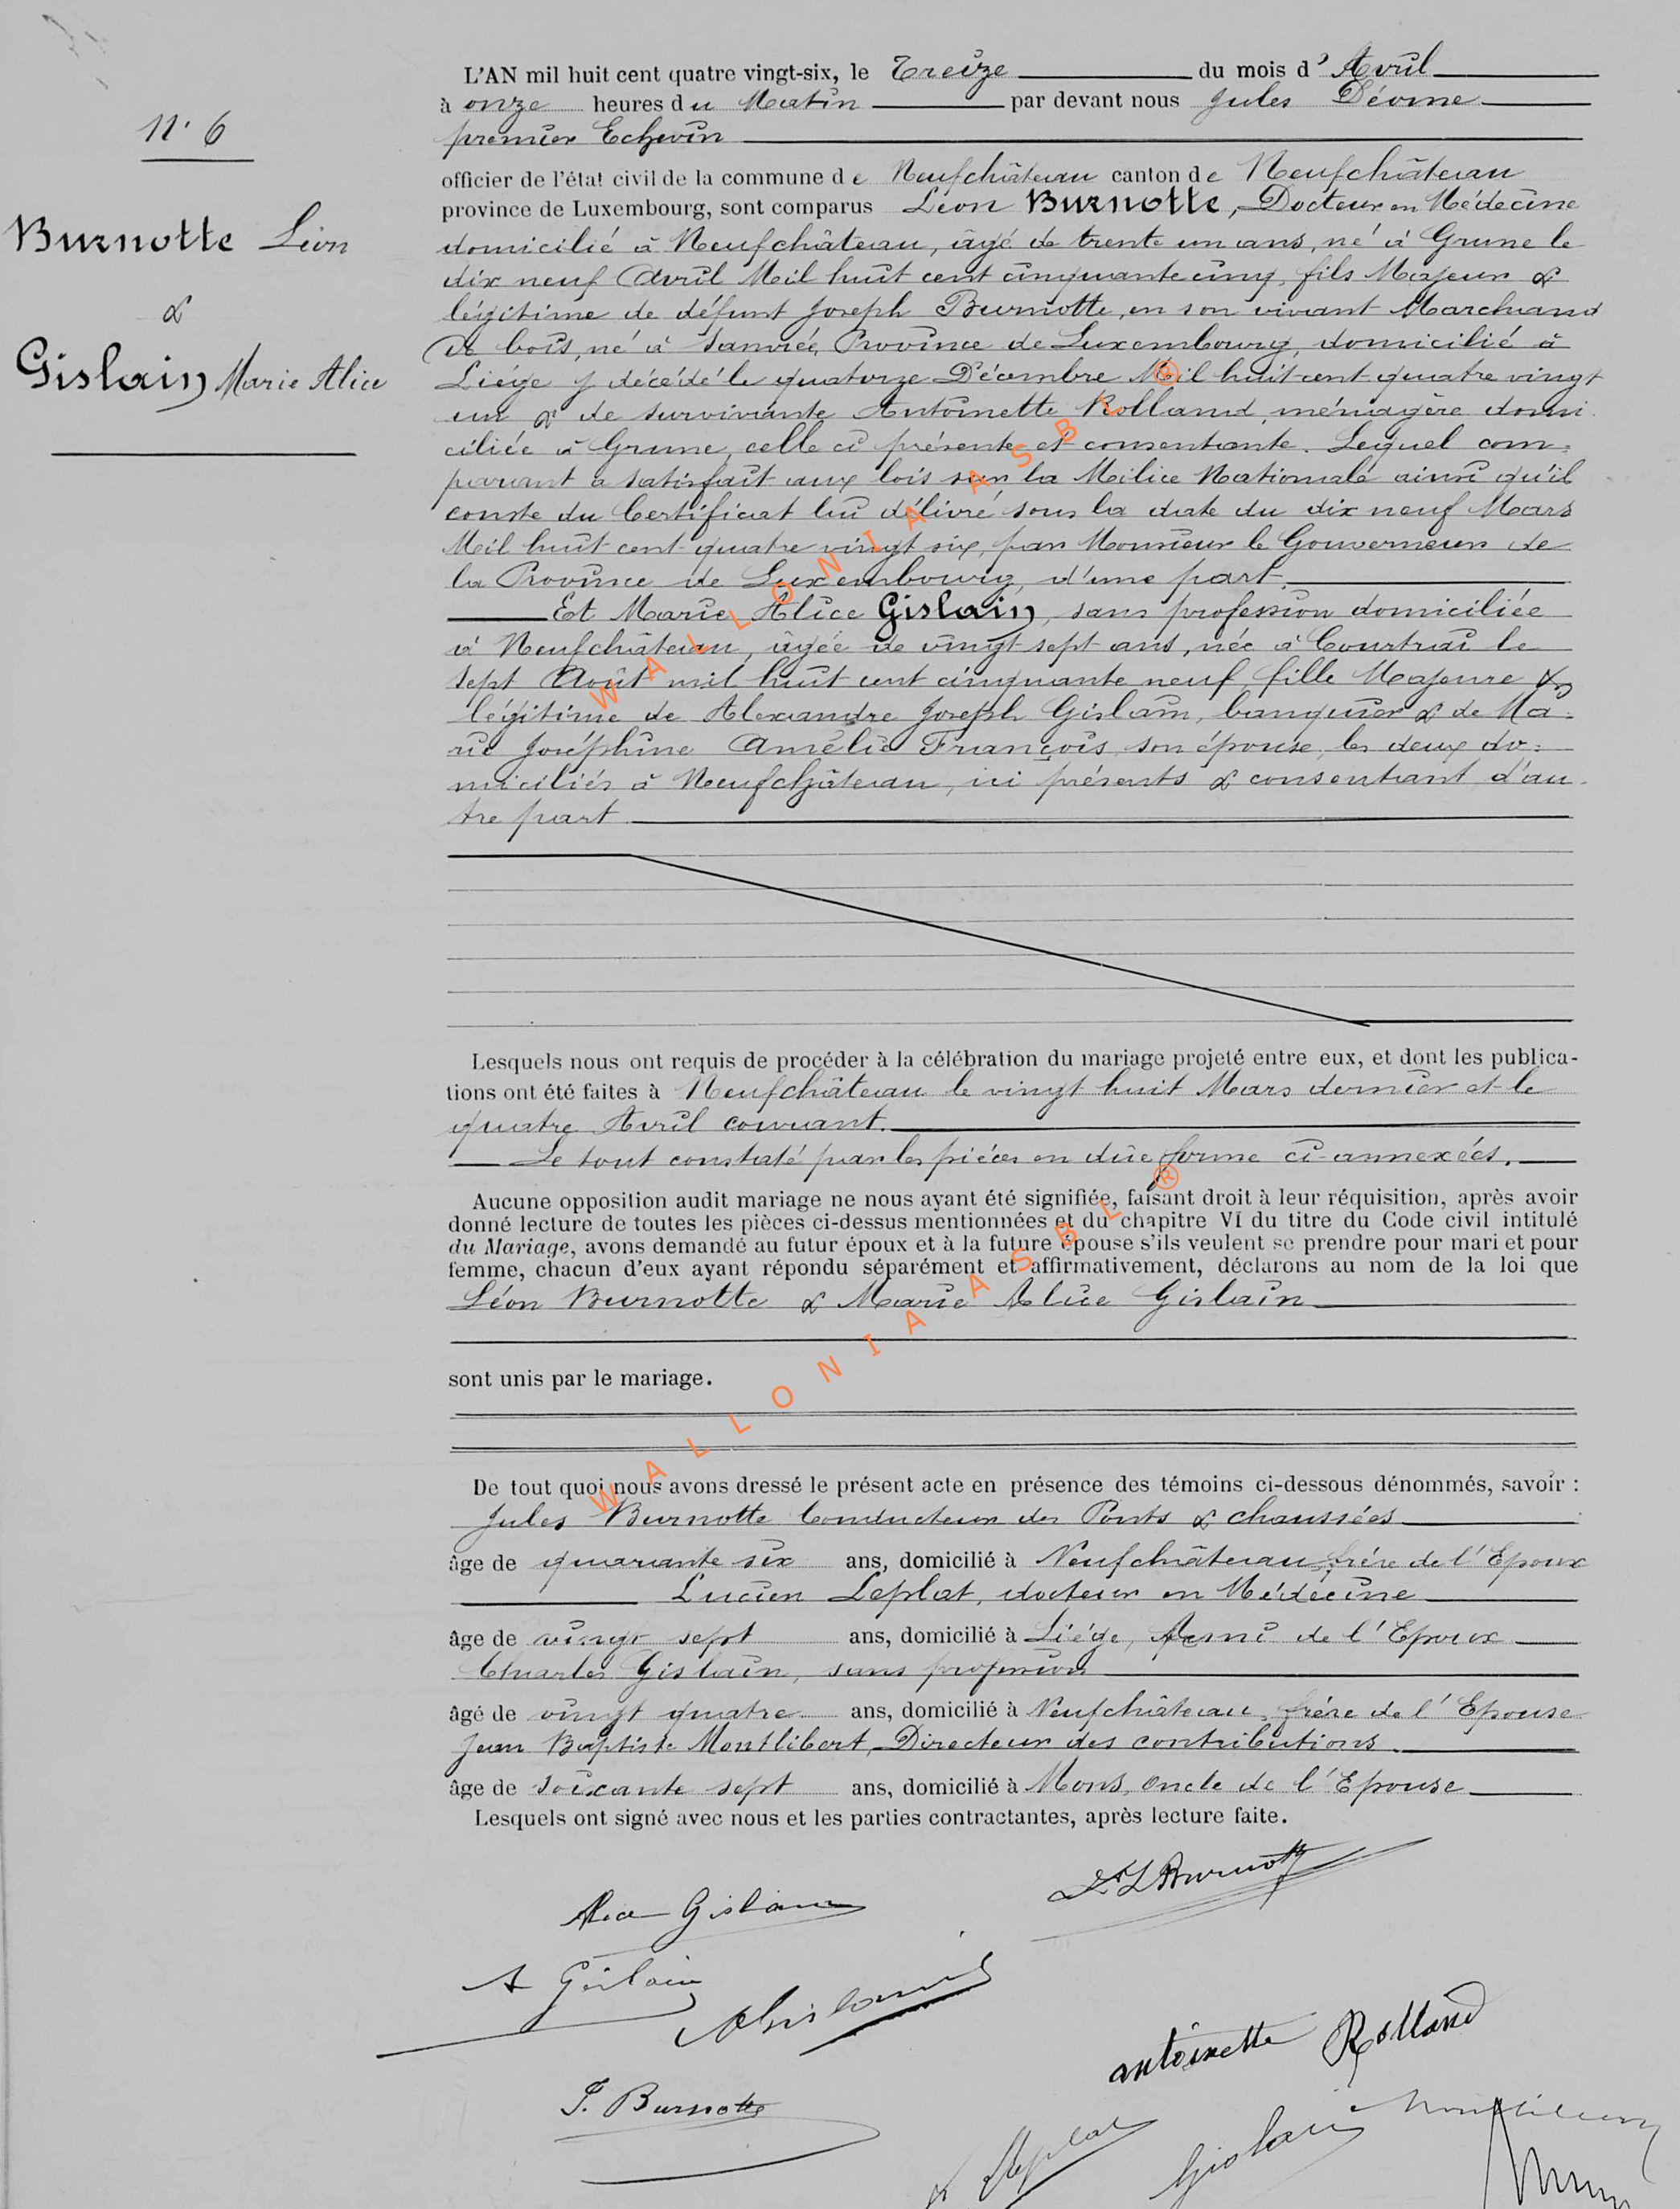 L'AN mil huit cent quatre vingt-six, le Treize du mois d' Avril
à onze heures du Matin par devant nous Jules
premier Echevin
N° 6
officier de l'état civil de la commune de Neufchâteau canton de Neufchâteau
province de Luxembourg, sont comparus Léon Burnotte, Docteur en Médecine
Burnotte Léon
&
Gislain Marie Alice
domicilié à Neufchâteau, âgé de trente un ans, né à Grune le
dix neuf Avril Mil huit cent cinquante cinq, fils Majeur &
légitime de défunt Joseph Burnotte, en son vivant Marchand
de bois, né à Province de Luxembourg, domicilié à
Liége y décédé le quatorze Décembre Mil huit cent quatre vingt
un & de survivante Antoinette Rolland, ménagère domi
ciliée à Grune, celle ci présente et consentante. Lequel com=
parant a satisfait aux lois sur la Milice Nationale ainsi qu'il
conste du Certificat lui délivré sous la date du dix neuf Mars
Mil huit cent quatre vingt six, par Monsieur le Gouverneur de
la Province de Luxembourg, d'une part.
Et Marie Alice Gislain, sans profession domiciliée
à Neufchâteau, âgée de vingt sept ans, née à Courtrai le
sept Août mil huit cent cinquante neuf, fille Majeure &
légitime de Alexandre Joseph Gislain, banquier & de Ma=
rie Joséphine Amélie François, son épouse, les deux do=
miciliés à Neufchâteau, ici présents & consentant d'au
tre part
Lesquels nous ont requis de procéder à la célébration du mariage projeté entre eux, et dont les publica-
tions ont été faites à Neufchâteau le vingt huit Mars dernier et le
quatre Avril courant.
Le tout constaté par les pièces en due forme ci-annexées.
Aucune opposition audit mariage ne nous ayant été signifiée, faisant droit à leur réquisition, après avoir
donné lecture de toutes les pièces ci-dessus mentionnées et du chapitre VI du titre du Code civil intitulé
du Mariage, avons demandé au futur époux et à la future épouse s'ils veulent se prendre pour mari et pour
femme, chacun d'eux ayant répondu séparément et affirmativement, déclarons au nom de la loi que
Léon Burnotte & Marie Alice Gislain
sont unis par le mariage.
De tout quoi nous avons dressé le présent acte en présence des témoins ci-dessous dénommés, savoir :
Jules Burnotte Conducteur des Ponts & chaussées
âge de quarante six ans, domicilié à Neufchâteau, frère de l'Epoux
Lucien Leplat, docteur en Médecine
âge de vingt sept ans, domicilié à Liége, Ami de l'Epoux
Charles Gislain, sans profession
âgé de vingt quatre ans, domicilié à Neufchâteau, frère de l'Epouse
Jean Baptiste Montlibert, Directeur des contributions
âge de soixante sept ans, domicilié à Mons, Oncle de l'Epouse
Lesquels ont signé avec nous et les parties contractantes, après lecture faite.
Alice Gislain
Dr L Burnotte
A Gislain
antoinette Rolland
J. Burnotte
L Leplat
Gislain
WALLONIA ASBL ®
WALLONIA ASBL ®